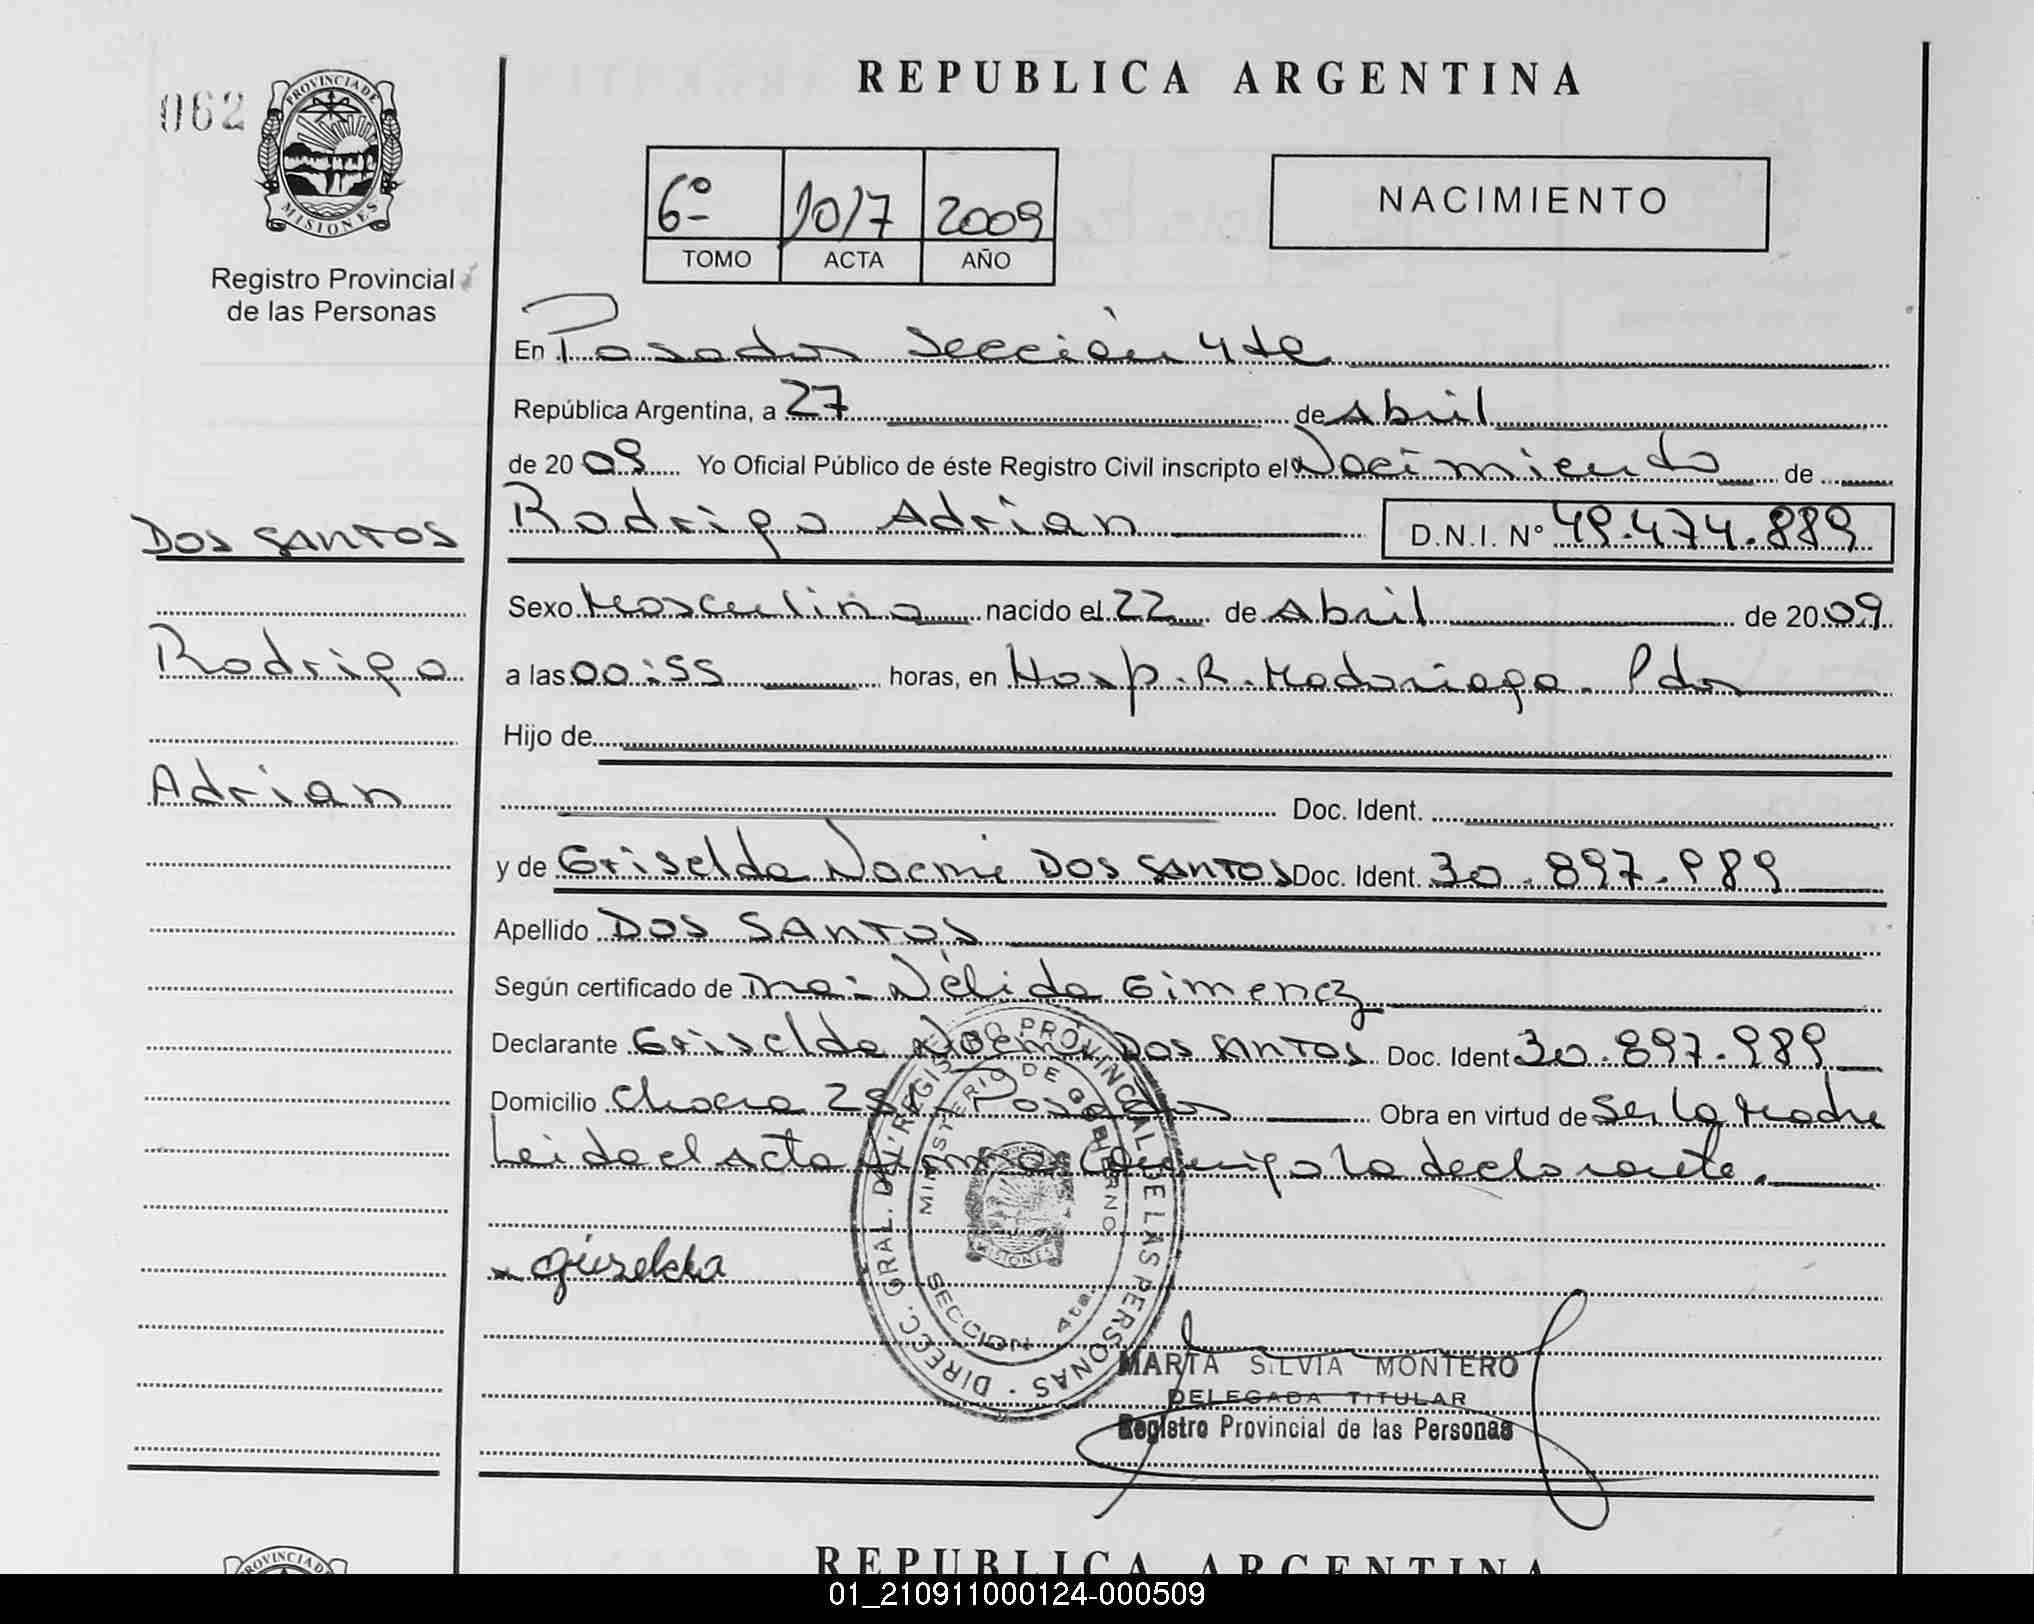 062
PROVINCIA DE
MISIONES
Registro Provincial
de las Personas
REPUBLICA ARGENTINA
6º 1017 2009
TOMO ACTA AÑO
NACIMIENTO
En Posadas Sección 4ta
República Argentina, a 27 de Abril
de 2009 Yo Oficial Público de éste Registro Civil inscripto el Nacimiento de
Rodrigo Adrian D.N.I. Nº 49.474.889
DOS SANTOS
Rodrigo
Adrian
Sexo Masculino nacido el 22 de Abril de 2009
a las 00:55 horas, en Hosp. R. Madariaga. Pdas
Hijo de
Doc. Ident.
y de Griselda Noemi DOS SANTOS Doc. Ident. 30.897.989
Apellido DOS SANTOS
Según certificado de Dra: Nélida Gimenez
Declarante Griselda Noemi DOS SANTOS Doc. Ident 30.897.989
Domicilio Chacra Posadas Obra en virtud de Ser la Madre
Leida el Acta firma conmigo la declarante.
DIRECC. GRAL. DEL REGISTRO PROVINCIAL DE LAS PERSONAS
MINISTERIO DE GOBIERNO
MISIONES
SECCION 4ta.
Griselda
MARTA SILVIA MONTERO
DELEGADA TITULAR
Registro Provincial de las Personas
PROVINCIA DE
REPUBLICA ARGENTINA
01_210911000124-000509